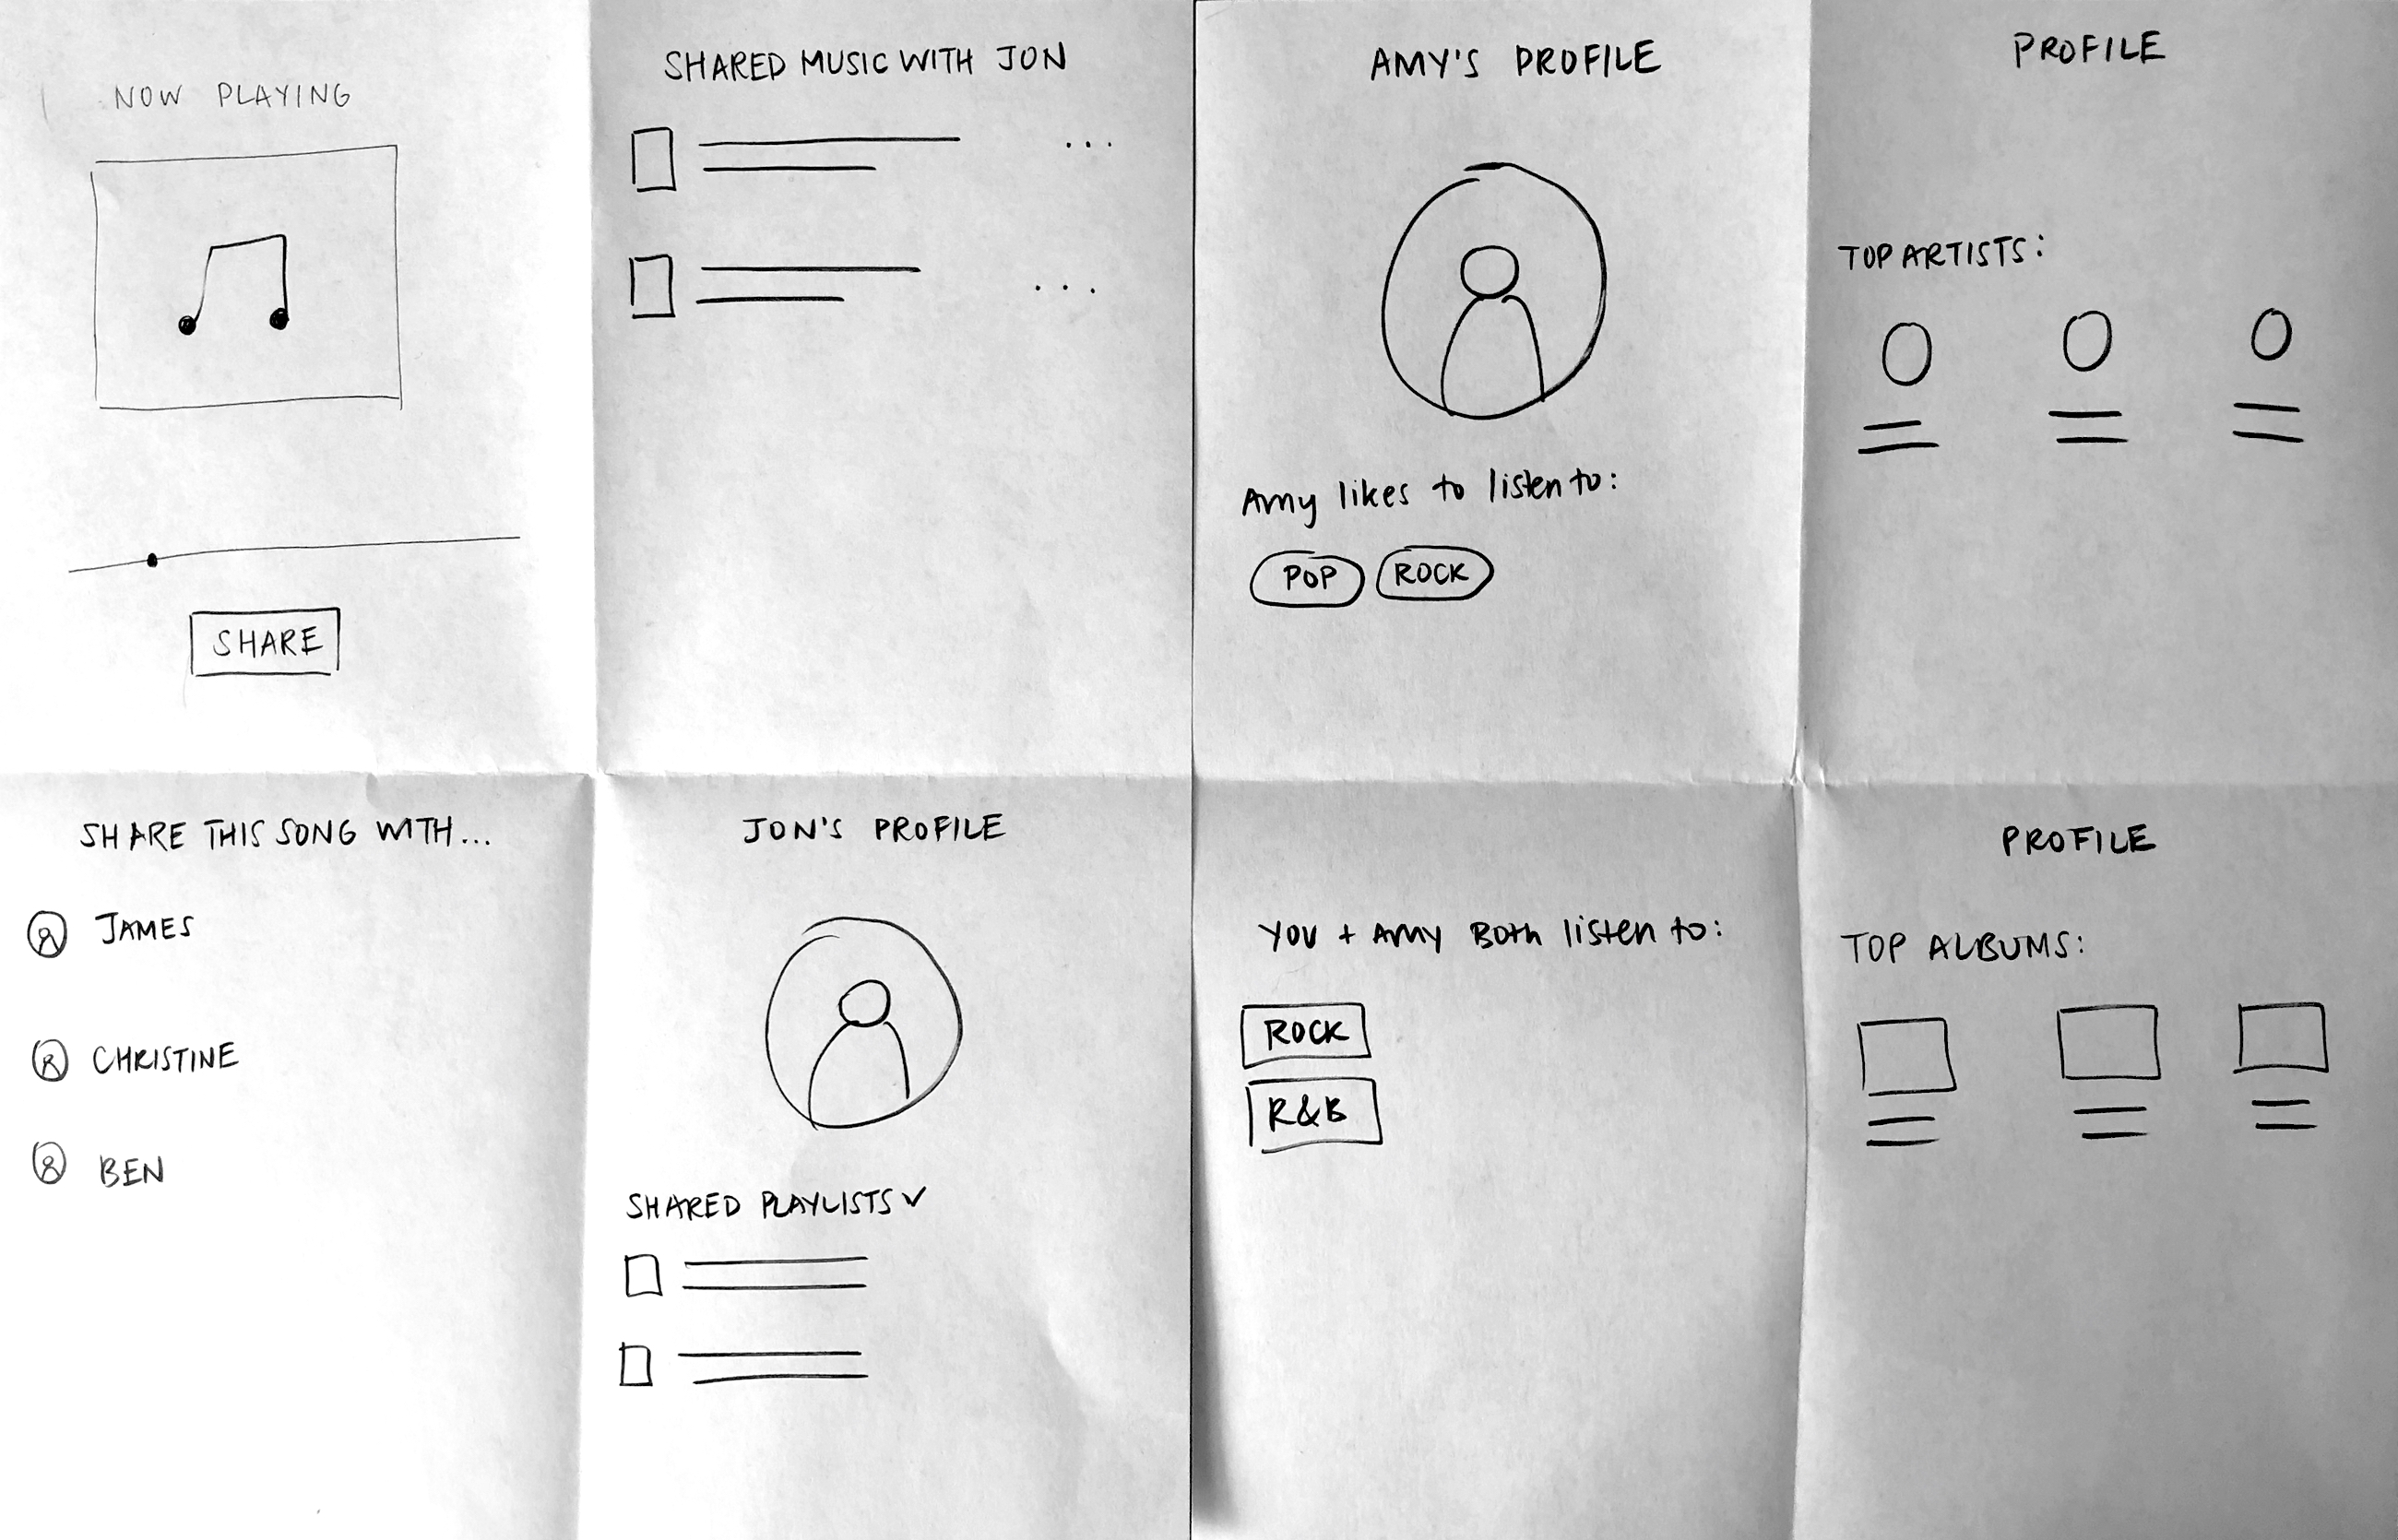 NOW PLAYING
SHARE
SHARED MUSIC WITH JON
...
...
AMY'S PROFILE
Amy likes to listen to:
POP ROCK
PROFILE
TOP ARTISTS:
SHARE THIS SONG WITH...
JAMES
CHRISTINE
BEN
JON'S PROFILE
SHARED PLAYLISTS
YOU + AMY BOTH listen to:
ROCK
R&B
PROFILE
TOP ALBUMS: